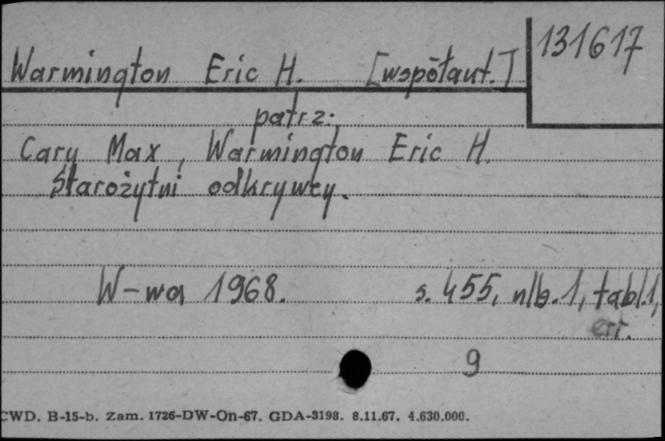 131617
Warmington Eric H. [współaut.]
patrz:
Cary Max, Warmington Eric H.
Starożytni odkrywcy.
W-wa 1968. s. 455, nlb. 1, tabl. 1,
err.
9
CWD. B-15-b. Zam. 1726-DW-On-67. GDA-3198. 8.11.67. 4.630.000.